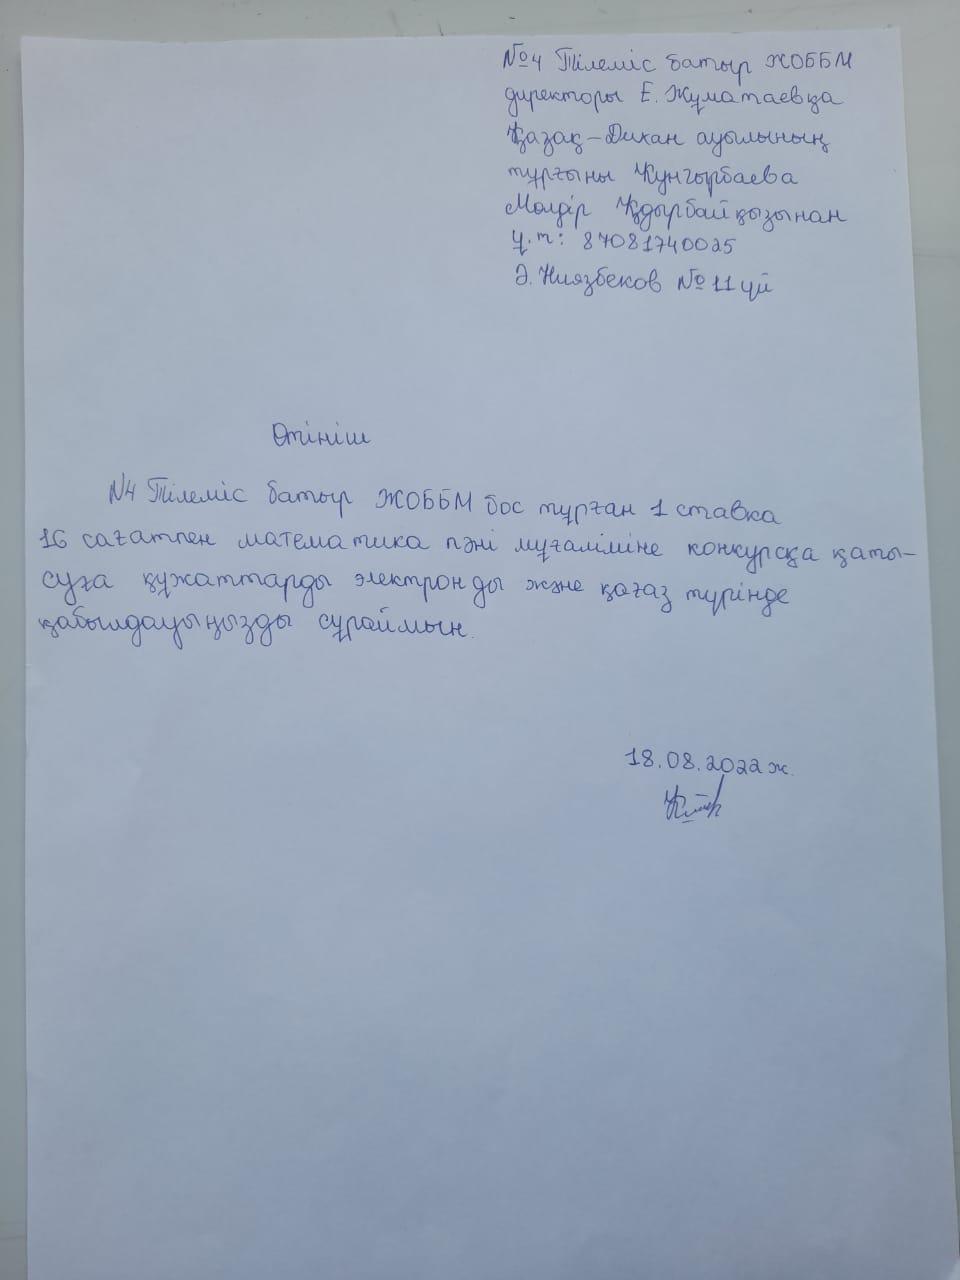 №4 Тілеміс батыр ЖОББМ
директоры Е. Жұматаевқа
Қазақ-Дихан ауылының
тұрғыны Кунгырбаева
Мөлдір Қыдырбайқызынан
ұ.т: 87081740025
Ә. Ниязбеков №11 үй
Өтініш
N4 Тілеміс батыр ЖОББМ бос тұрған 1 ставка
16 сағатпен математика пәні мұғаліміне конкурсқа қаты-
суға құжаттарды электронды және қағаз түрінде
қабылдауыңызды сұраймын.
18.08.2022ж.